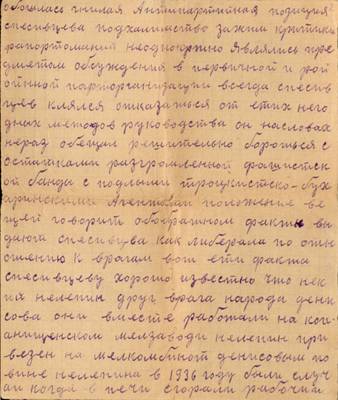 обошлась гнилая Антипартитная позиция
спесивцева подхалимство зажим критики
рапортомания неоднократно являлись пре
дметом обсуждения в первичной и рай
онной парторганизации всегда спесив
цев клялся отказаться от етих него
дных методов руководства он насловах
нераз обещал решительно бороться с
остатками разгромленной фашистск
ой банды с подлыми троцкистско-бух
аринскими Агентами положение ве
щей говорит обобратном факты вы
дают спесивцева как либерала по отн
ошению к врагам вот ети факта
спесивцеву хорошо известно что нек
ий нелепин друг врага народа дени
сова они вместе работали на
мелзаводи нелепин при
везен на мелкомбинат денисовым по
вине нелепина в 1936 году были случ
аи когда в печи сгорали рабочий